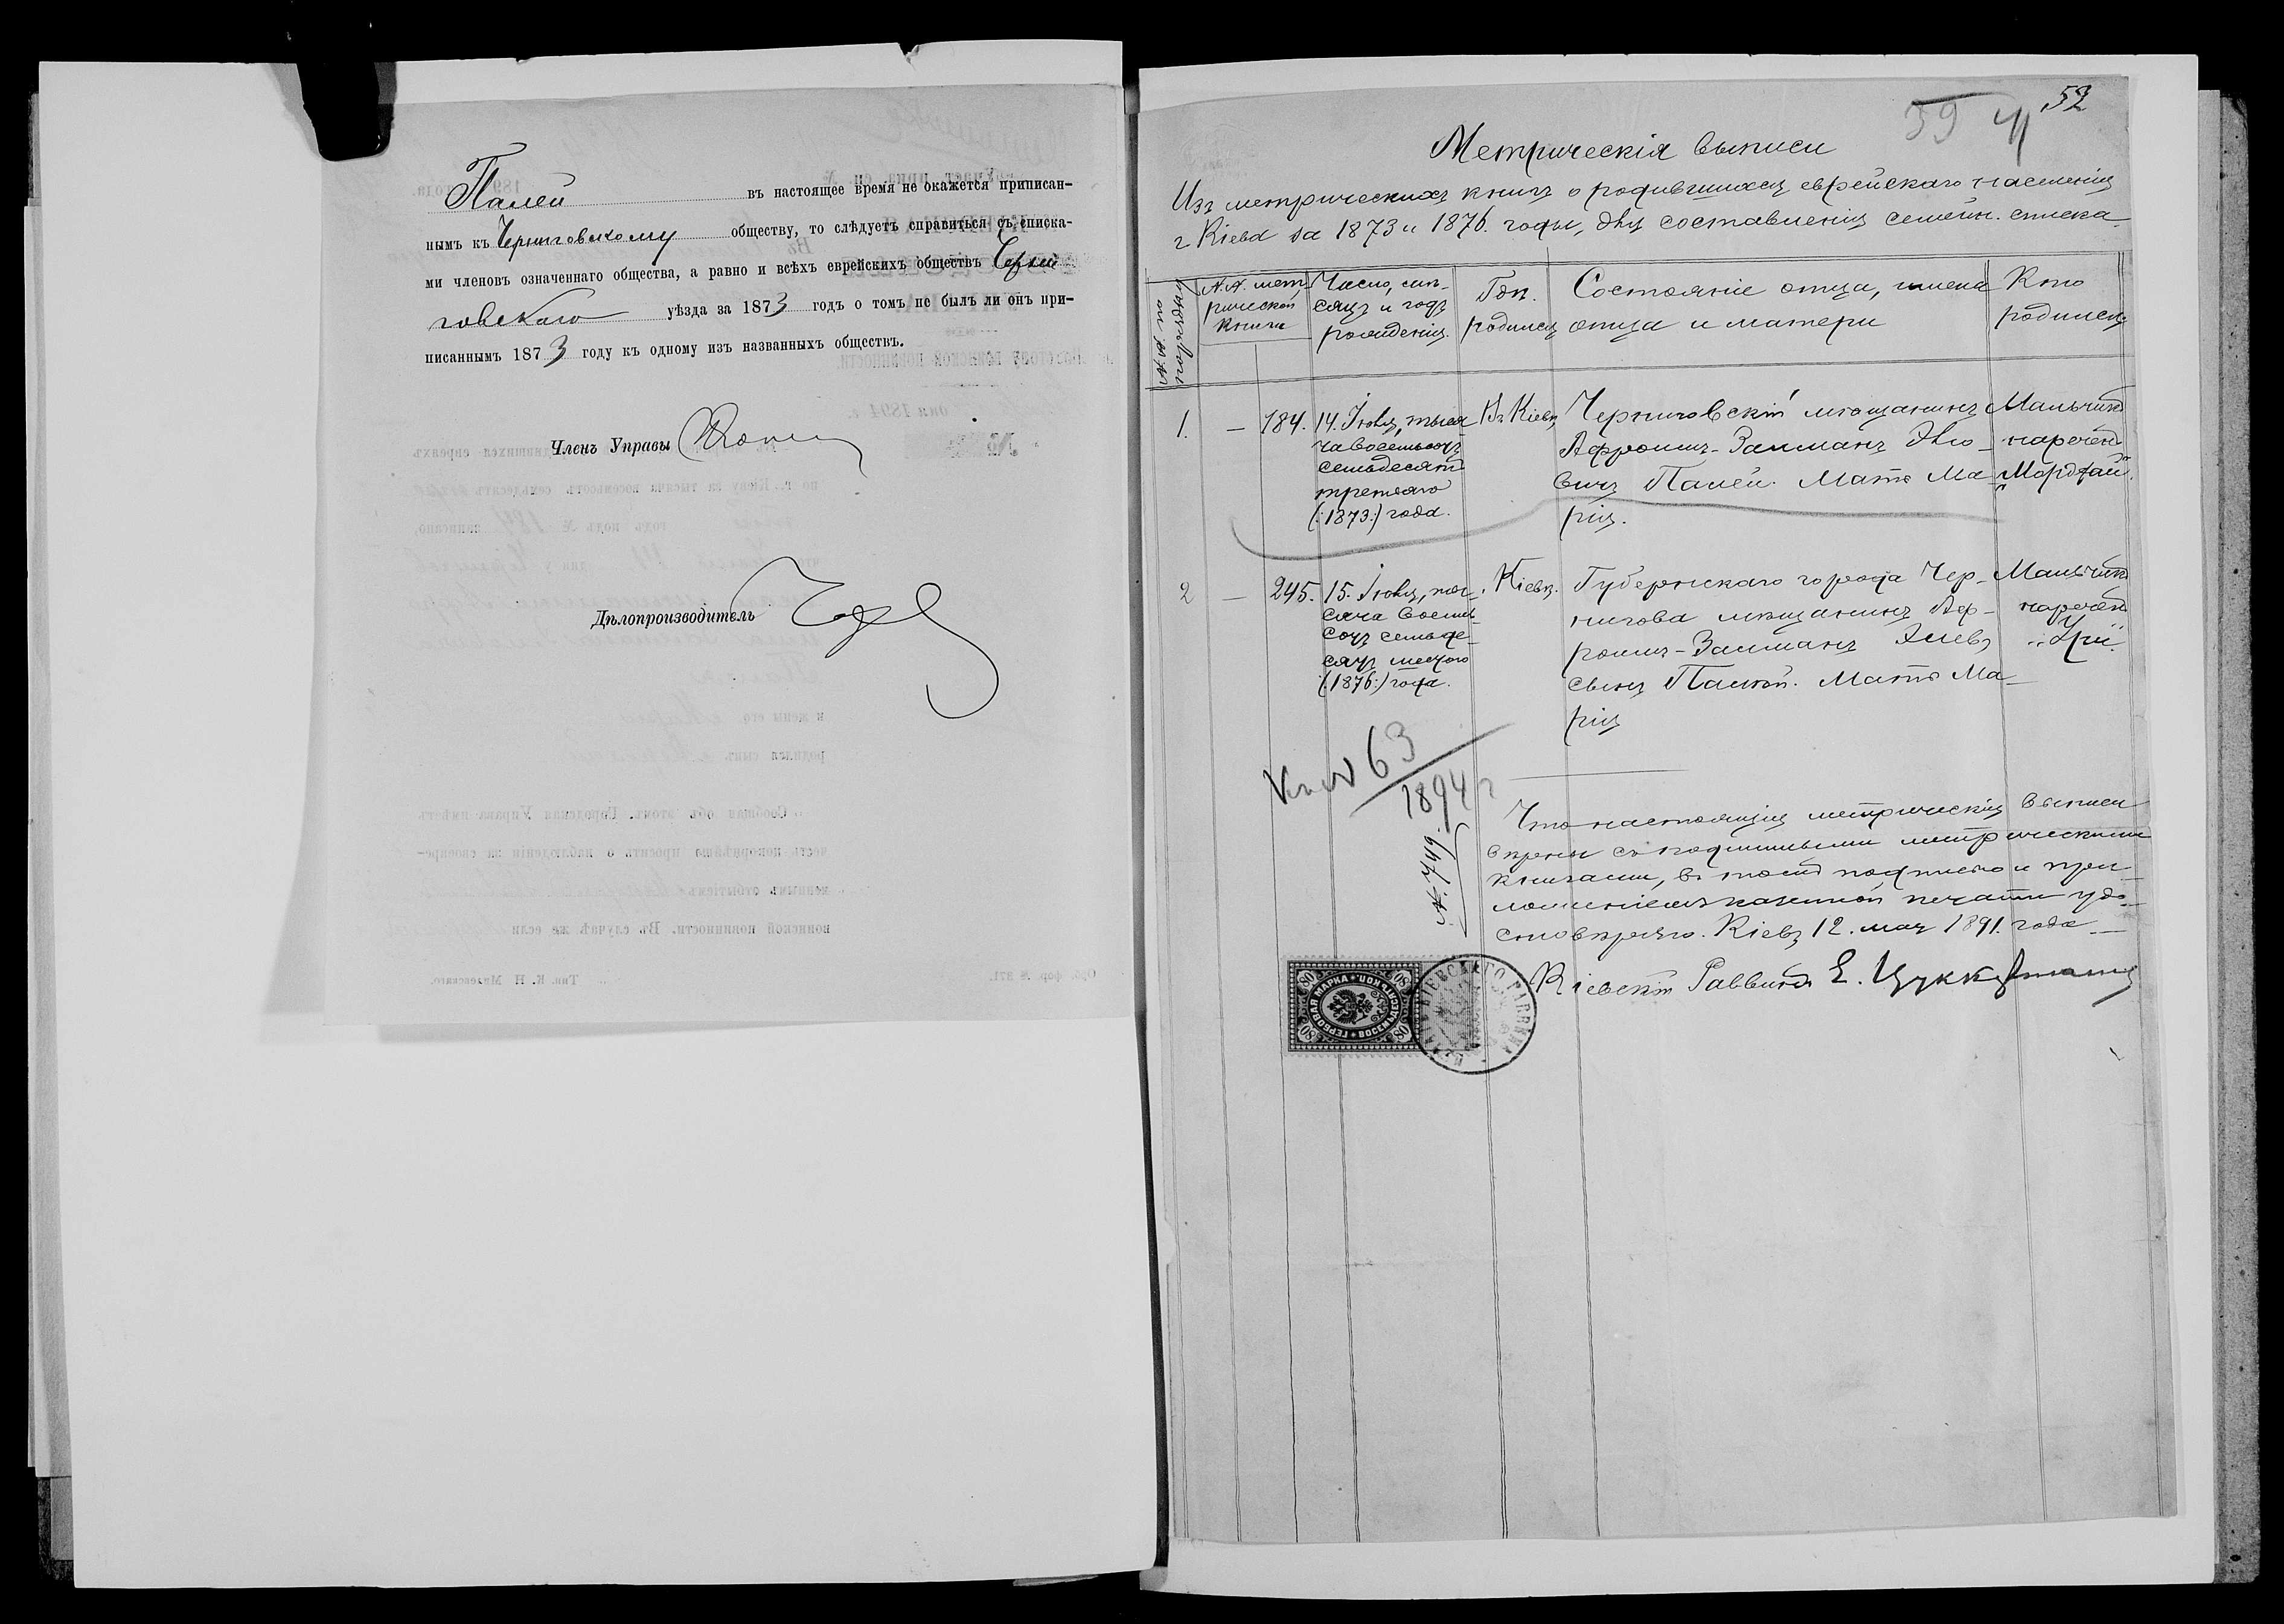 Палей въ настоящее время не окажется приписан-
нымъ къ Черниговскому обществу, то слѣдуетъ справиться съ списка-
ми членовъ означеннаго общества, а равно и всѣхъ еврейскихъ обществъ Черни
говскаго уѣзда за 1873 годъ о томъ не былъ ли онъ при-
писаннымъ 1873 году къ одному изъ названныхъ обществъ.
Членъ Управы
Дѣлопроизводитель
59 52
Метрическія выписи
Изъ метрическихъ книгъ о родившихся еврейскаго населенія
г Кіева за 1873 и 1876. годы, для составленія семейн. списка
№№ по порядку
№№ мет
рической
книги
Число, мѣ-
сяцъ и годъ
рожденія.
Гдѣ
родился
Состояніе отца, имена
отца и матери
Кто
родился
1. — 184.
14. Іюня, тыся
ча восемьсотъ
семьдесятъ
третьяго
(:1873:) года.
Въ Кіевѣ
Черниговскій мѣщанинъ
Афроимъ-Залманъ Эліо-
вичъ Палей. Мать Ма-
рія.
Мальчикъ
нареченъ
„Мордхай“.
2 — 245.
15. Іюня, ты-
сяча восемь
сотъ семьде-
сятъ шестого
(:1876:) года.
Кіевѣ.
Губернскаго города Чер-
нигова мѣщанинъ Аф-
роимъ-Залманъ Эліевъ
сынъ Палѣй. Мать Ма-
рія
Мальчикъ
нареченъ
„Урій“.
63
1894 г
№ 749.
Что настоящія метрическія выписи
вѣрны съ подлинными метрическими
книгами, въ томъ подписью и при-
ложеніемъ казенной печати удо-
стовѣряю. Кіевъ 12. мая 1891. года
Кіевскій Раввинъ Е. Цуккерманъ
80 ГЕРБОВАЯ МАРКА ВОСЕМЬДЕСЯТЪ КОП. 80
КІЕВСКАГО РАВВИНА